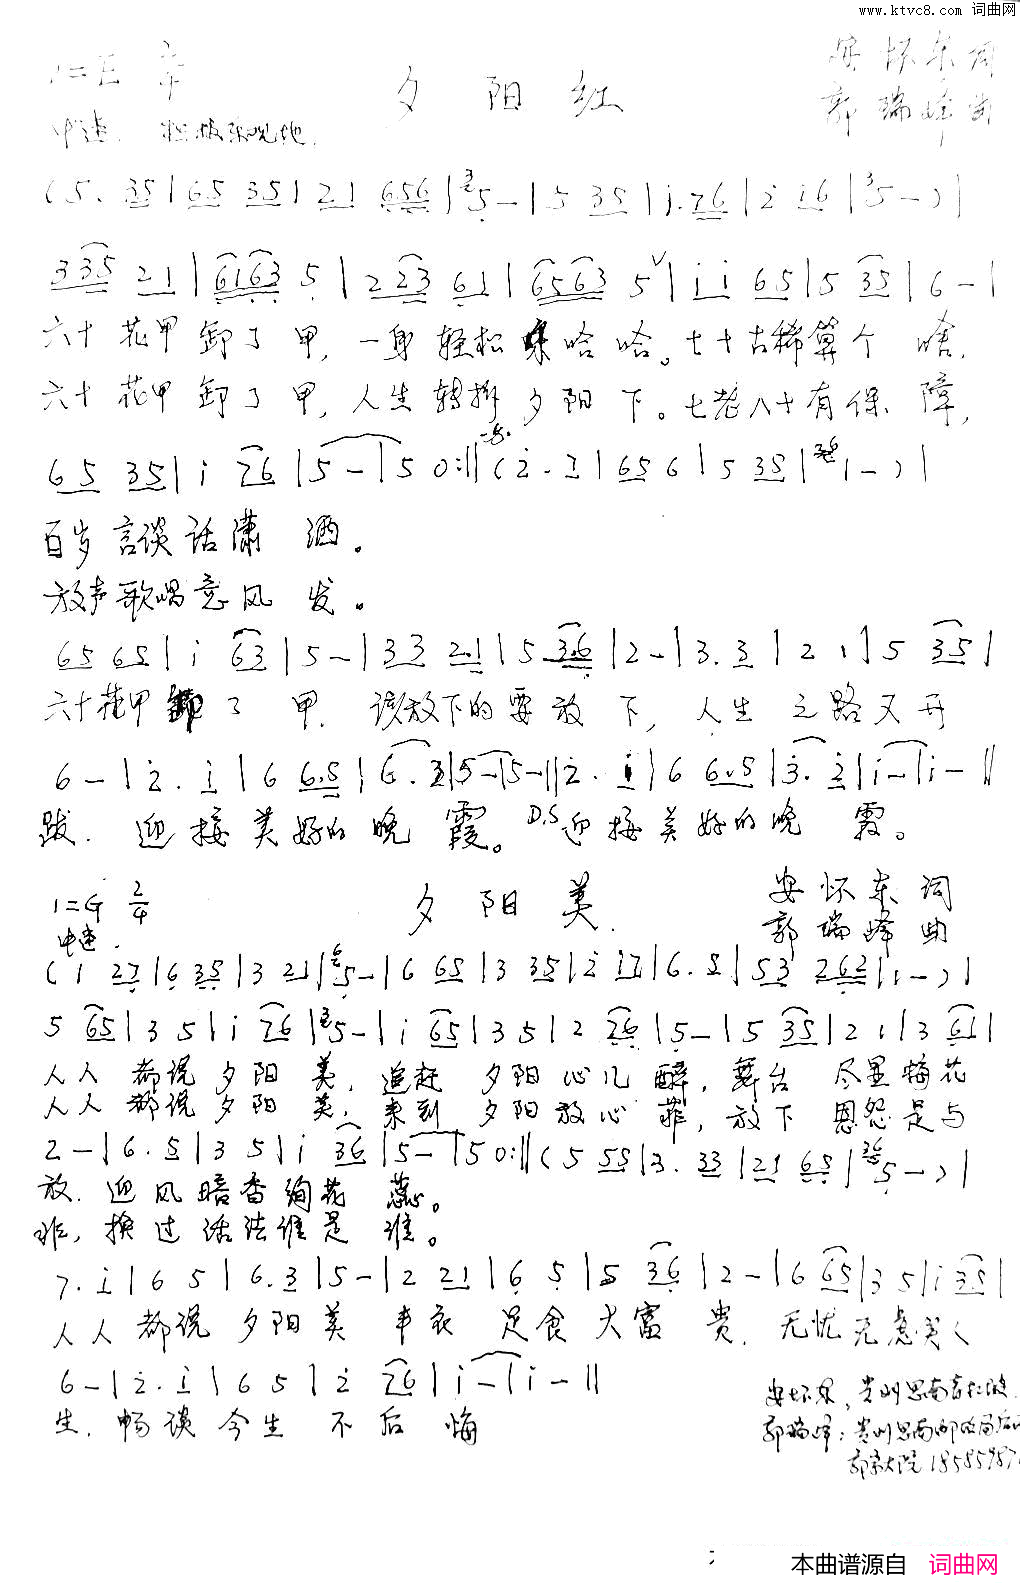 www.ktvc8.com 词曲网
1=E 2/4 夕阳红 安怀东词
中速. 郭瑞峰曲
(5. 35|65 35|21 656|5-|5 35|i.76|2 i6|5-)|
3 35 21|6163 5|2 23 61|6563 5|i i 65|5 35|6-|
六十花甲卸了甲,一身轻松 哈哈。七十古稀算个啥.
六十花甲卸了甲,人生转折夕阳下。七老八十有保障,
65 35|i 76|5-|5 0:||(2. 7|65 6|5 35|1-)|
百岁言谈话潇洒。
放声歌唱意风发。
65 65|i 63|5-|33 2.1|5 3.6|2-|3. 3|2 1|5 35|
六十花甲卸了甲.该放下的要放下,人生之路又开
6-|2. i|6 6.5|6. 3|5-|5-||2. i|6 6.5|3. 2|i-|i-||
跋.迎接美好的晚霞。D.S迎接美好的晚霞。
1=G 2/4 夕阳美. 安怀东词
中速. 郭瑞峰曲
(1 27|6 35|3 21|5-|6 65|3 35|2 17|6. 5|53 262|1-)|
5 65|3 5|i 76|5-|i 65|3 5|2 76|5-|5 35|2 1|3 61|
人人都说夕阳美,追赶夕阳心儿醉,舞台尽显梅花
人人都说夕阳美,来到夕阳放心菲,放下恩怨是与
2-|6. 5|3 5|i 36|5-|5 0:||(5 55|3. 33|21 65|5-)|
放.迎风暗香绚花蕊。
非,换过活法谁是谁。
7. i|6 5|6. 3|5-|2 21|6 5|5 36|2-|6 65|3 5|i 35|
人人都说夕阳美 丰衣足食大富贵.无忧无虑美人
6-|2. i|6 5|2 76|i-|i-||
生.畅谈今生不后悔
安怀东,贵州思南
郭瑞峰:贵州思南邮政局
郭家大院 18585987
本曲谱源自 词曲网